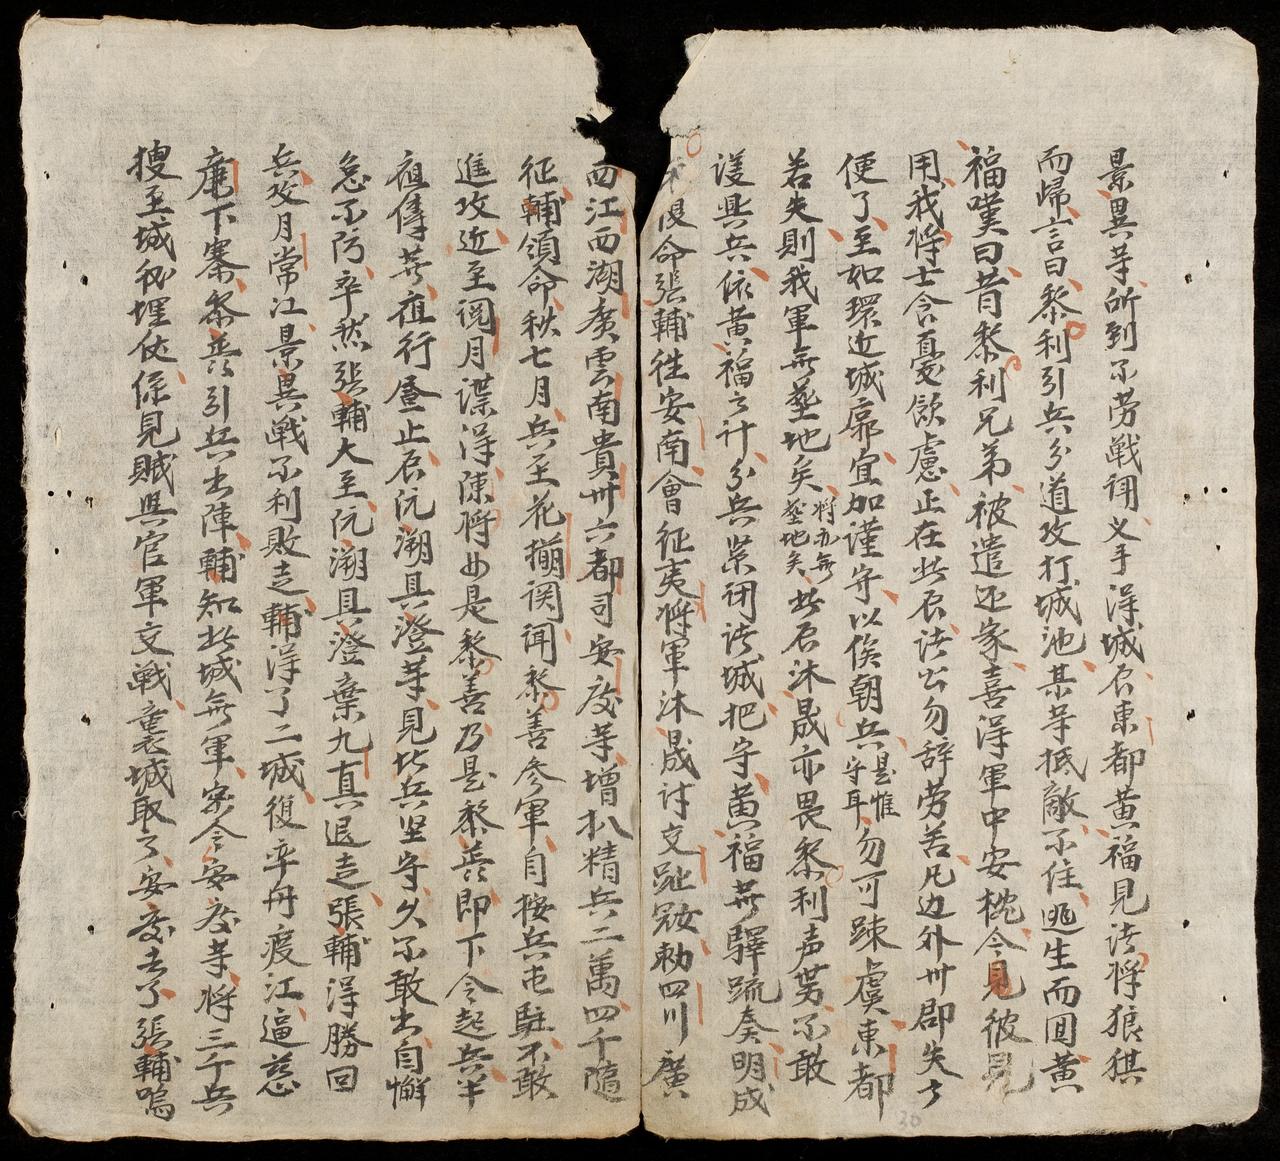 景異等所到不劳戦鬪义手淂城启東都黄福見诸将狼狽
而歸言曰黎利引兵分道攻打城池某等抵敵不住逃生而囬黄
福嘆曰昔黎利兄弟被遣还家喜淂軍中安枕今見彼見
用我将士含憂飲慮正在此启诸公勿辞劳苦凡边外卅郡失于
便了至如環近城廓宜加谨守以俟朝兵是惟守耳勿可踈虞東都
若失則我軍無塟地矣将亦無塟地矣此启沐晟亦畏黎利声势不敢
護興兵依黄福之计分兵紧闭诸城把守黄福等驛疏奏明成
復命張輔往安南會征夷将軍沐晟讨交趾冦敕四川廣
西江西湖廣雲南貴卅六都司安度等增扒精兵二萬四千隨
征輔領命秋七月兵至花搠闵闻黎善参軍自按兵屯駐不敢
進攻近至阅月諜淂陳将如是黎善乃是黎善即下令起兵半
夜俥等夜行昼止启沅溯具澄等見北兵坚守久不敢出自懈
怠不防卒然張輔大至沅溯具澄棄九真退走張輔淂勝回
兵攻月常江景異戦不利敗走輔淂了二城復率舟渡江逼慈
廉下寨黎善引兵出陣輔知此城無軍密令安度等将三千兵
搜至城秘埋伏係見賊與官軍交戦裏城取了安度去了張輔鳴
30